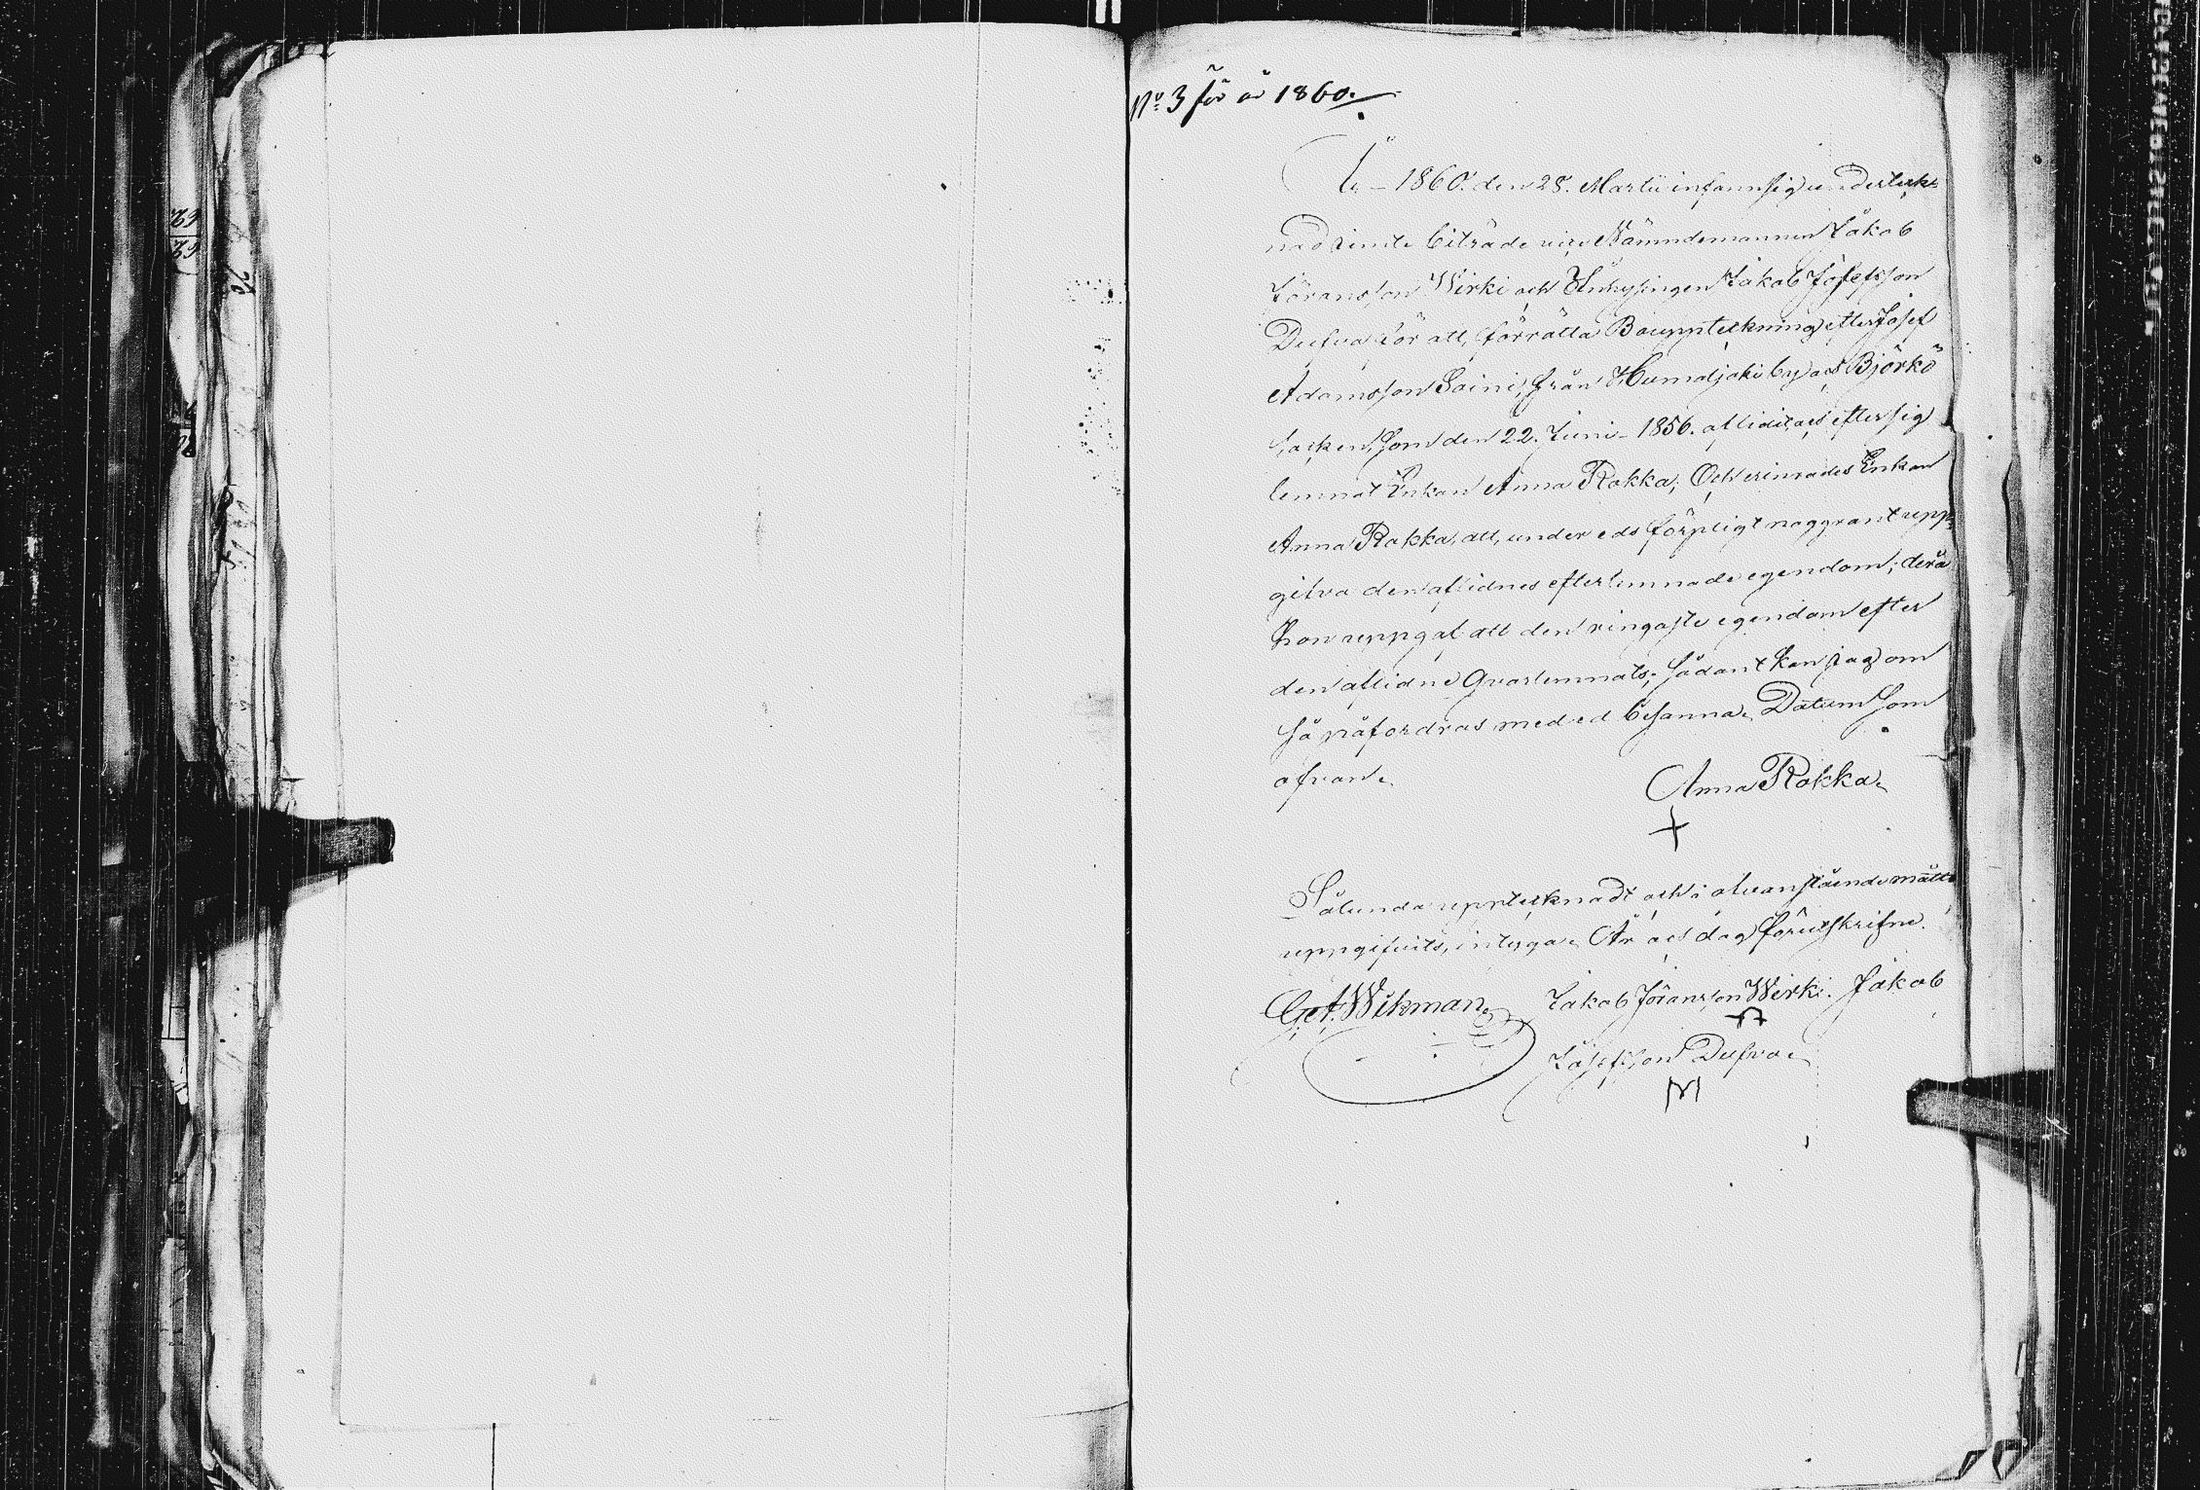 No 3 för år 1860.
År 1860. den 28. Martii infann sig underteck-
nad jemte biträde vice Nämndemannen Jakob
Jöransson Wirki och Inhysingen Jakob Josefsson
Dufva för att förrätta Bouppteckning efter Josef
Adamsson Soini, från Humaljoki by och Björkö
Socken, som den 22. Juni 1856. aflidit och efter sig
lemnat Enkan Anna Rokka; Och erinrades Enkan
Anna Rokka, att, under eds förpligt noggrant upp-
gifva den aflidnes efterlemnade egendom; derå
hon uppgaf att den ringaste egendom efter
den aflidne qvarlemnats; sådant kan jag om
så påfordras med ed besanna. Datum som
ofvan.
Anna Rokka.
Sålunda upptecknadt och i ofvanstående måtto
uppgifvits, intyga. År och dag förutskrifne.
Get. Wikman. Jakob Jöransson Wirki. Jakob
Josefsson Dufva.